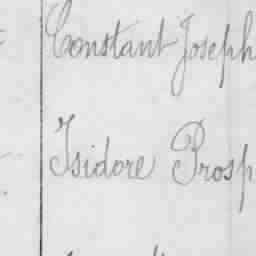 Constant Joseph
Isidore Prosp